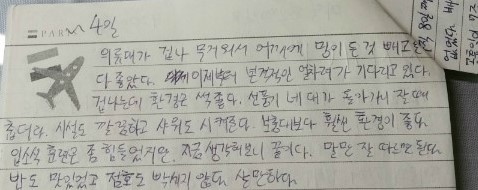 PARM 4일
의류대가 겁나 무거워서 어깨에 멍이 든 것 빼고
다 좋았다. 이제부터 본격적인 열하려가 기다리고 있다.
겁나는데 환경은 썩 좋다. 선풍기 네 대가 돌아가니 잘 때
춥더라. 시설도 깔끔하고 샤워도 시켜준다. 보충대보다 훨씬 환경이 좋다.
입소식 훈련은 좀 힘들었지만, 지금 생각해보니 끝이다. 말만 잘 따르면 된다.
밥도 맛있었고 점호도 박세지 않다. 살만하다.
없었다